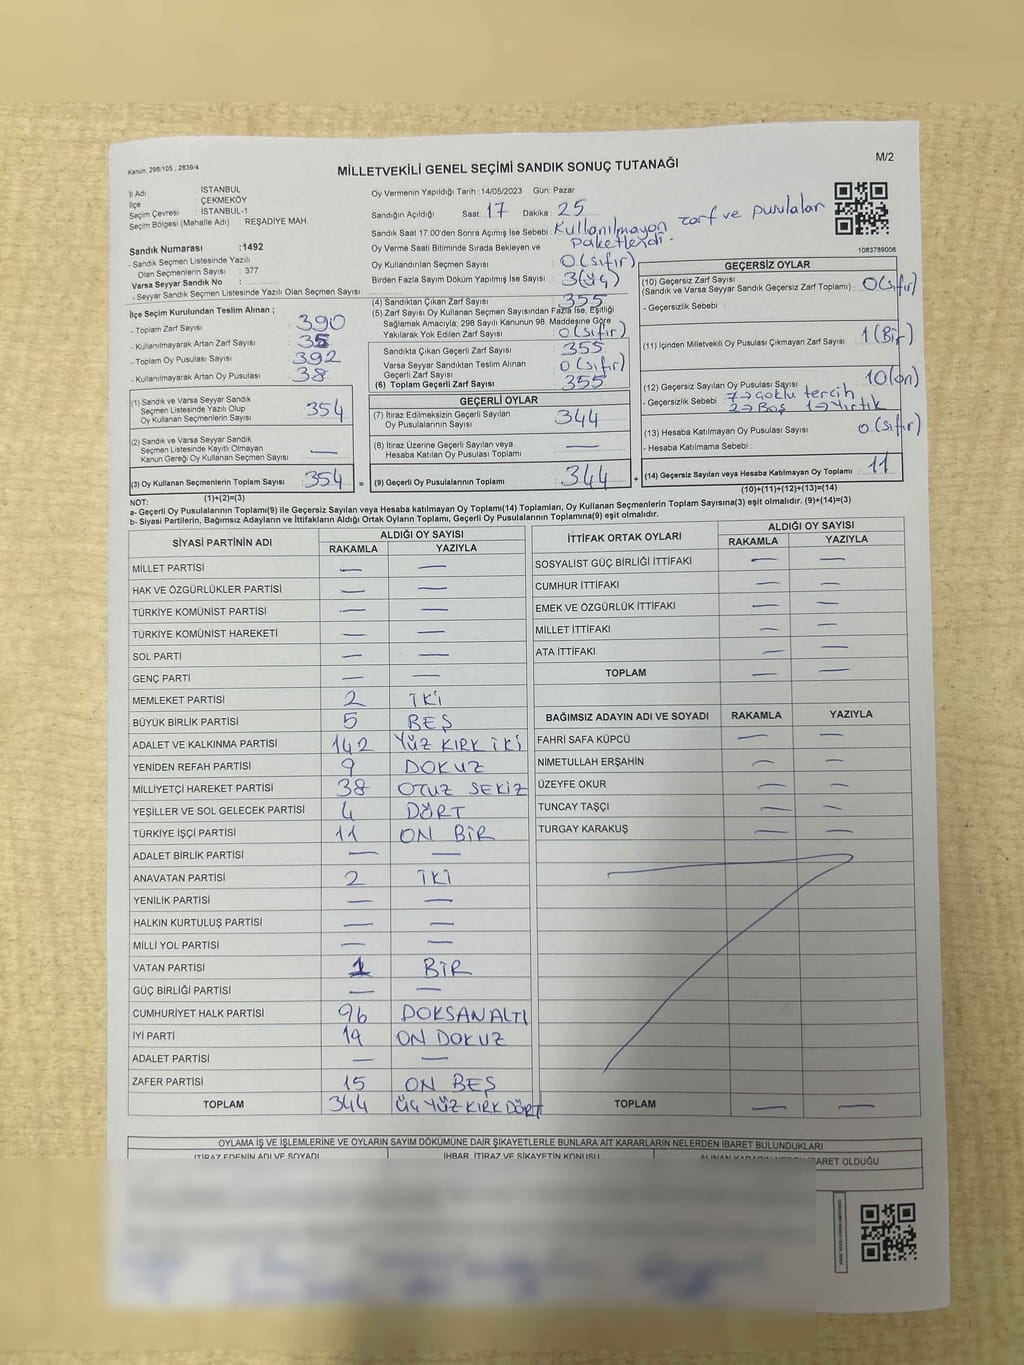 Kanun: 298/105 , 2839/4
MİLLETVEKİLİ GENEL SEÇİMİ SANDIK SONUÇ TUTANAĞI
M/2
İl Adı : İSTANBUL
İlçe : ÇEKMEKÖY
Seçim Çevresi : İSTANBUL-1
Seçim Bölgesi (Mahalle Adı) : REŞADİYE MAH.
Sandık Numarası :1492
- Sandık Seçmen Listesinde Yazılı
Olan Seçmenlerin Sayısı : 377
Varsa Seyyar Sandık No :
- Seyyar Sandık Seçmen Listesinde Yazılı Olan Seçmen Sayısı:
Oy Vermenin Yapıldığı Tarih :14/05/2023 Gün: Pazar
Sandığın Açıldığı Saat: 17 Dakika : 25
Sandık Saat 17.00'den Sonra Açılmış İse Sebebi : Kullanılmayan zarf ve pusulalar
paketlendi.
Oy Verme Saati Bitiminde Sırada Bekleyen ve
Oy Kullandırılan Seçmen Sayısı : 0 (sıfır)
Birden Fazla Sayım Döküm Yapılmış İse Sayısı : 3 (üç)
1083789006
İlçe Seçim Kurulundan Teslim Alınan ;
- Toplam Zarf Sayısı : 390
- Kullanılmayarak Artan Zarf Sayısı : 35
- Toplam Oy Pusulası Sayısı : 392
- Kullanılmayarak Artan Oy Pusulası : 38
(1) Sandık ve Varsa Seyyar Sandık
Seçmen Listesinde Yazılı Olup
Oy Kullanan Seçmenlerin Sayısı : 354
(2) Sandık ve Varsa Seyyar Sandık
Seçmen Listesinde Kayıtlı Olmayan
Kanun Gereği Oy Kullanan Seçmen Sayısı : —
(3) Oy Kullanan Seçmenlerin Toplam Sayısı : 354 =
(1)+(2)=(3)
(4) Sandıktan Çıkan Zarf Sayısı : 355
(5) Zarf Sayısı Oy Kullanan Seçmen Sayısından Fazla İse, Eşitliği
Sağlamak Amacıyla; 298 Sayılı Kanunun 98. Maddesine Göre
Yakılarak Yok Edilen Zarf Sayısı : 0 (sıfır)
Sandıkta Çıkan Geçerli Zarf Sayısı : 355
Varsa Sandıktan Teslim Alınan
Geçerli Zarf Sayısı : 0 (sıfır)
(6) Toplam Geçerli Zarf Sayısı : 355
GEÇERLİ OYLAR
(7) İtiraz Edilmeksizin Geçerli Sayılan
Oy Pusulalarının Sayısı : 344
(8) İtiraz Üzerine Geçerli Sayılan veya
Hesaba Katılan Oy Pusulası Toplamı : —
(9) Geçerli Oy Pusulalarının Toplamı : 344 +
GEÇERSİZ OYLAR
(10) Geçersiz Zarf Sayısı
(Sandık ve Varsa Seyyar Sandık Geçersiz Zarf Toplamı) : 0 (sıfır)
- Geçersizlik Sebebi :
(11) İçinden Milletvekili Oy Pusulası Çıkmayan Zarf Sayısı : 1 (Bir)
(12) Geçersiz Sayılan Oy Pusulası Sayısı : 10 (on)
- Geçersizlik Sebebi : 7→çoklu tercih
2→Boş 1→Yırtık
(13) Hesaba Katılmayan Oy Pusulası Sayısı : 0 (sıfır)
- Hesaba Katılmama Sebebi :
(14) Geçersiz Sayılan veya Hesaba Katılmayan Oy Toplamı : 11
(10)+(11)+(12)+(13)=(14)
NOT:
a- Geçerli Oy Pusulalarının Toplamı(9) ile Geçersiz Sayılan veya Hesaba katılmayan Oy Toplamı(14) Toplamları, Oy Kullanan Seçmenlerin Toplam Sayısına(3) eşit olmalıdır. (9)+(14)=(3)
b- Siyasi Partilerin, Bağımsız Adayların ve İttifakların Aldığı Ortak Oyların Toplamı, Geçerli Oy Pusulalarının Toplamına(9) eşit olmalıdır.
SİYASİ PARTİNİN ADI ALDIĞI OY SAYISI
RAKAMLA YAZIYLA
MİLLET PARTİSİ — —
HAK VE ÖZGÜRLÜKLER PARTİSİ — —
TÜRKİYE KOMÜNİST PARTİSİ — —
TÜRKİYE KOMÜNİST HAREKETİ — —
SOL PARTİ — —
GENÇ PARTİ — —
MEMLEKET PARTİSİ 2 İKİ
BÜYÜK BİRLİK PARTİSİ 5 BEŞ
ADALET VE KALKINMA PARTİSİ 142 YÜZ KIRK İKİ
YENİDEN REFAH PARTİSİ 9 DOKUZ
MİLLİYETÇİ HAREKET PARTİSİ 38 OTUZ SEKİZ
YEŞİLLER VE SOL GELECEK PARTİSİ 4 DÖRT
TÜRKİYE İŞÇİ PARTİSİ 11 ON BİR
ADALET BİRLİK PARTİSİ — —
ANAVATAN PARTİSİ 2 İKİ
YENİLİK PARTİSİ — —
HALKIN KURTULUŞ PARTİSİ — —
MİLLİ YOL PARTİSİ — —
VATAN PARTİSİ 1 BİR
GÜÇ BİRLİĞİ PARTİSİ — —
CUMHURİYET HALK PARTİSİ 96 DOKSAN ALTI
İYİ PARTİ 19 ON DOKUZ
ADALET PARTİSİ — —
ZAFER PARTİSİ 15 ON BEŞ
TOPLAM 344 ÜÇ YÜZ KIRK DÖRT
İTTİFAK ORTAK OYLARI ALDIĞI OY SAYISI
RAKAMLA YAZIYLA
SOSYALİST GÜÇ BİRLİĞİ İTTİFAKI — —
CUMHUR İTTİFAKI — —
EMEK VE ÖZGÜRLÜK İTTİFAKI — —
MİLLET İTTİFAKI — —
ATA İTTİFAKI — —
TOPLAM — —
BAĞIMSIZ ADAYIN ADI VE SOYADI RAKAMLA YAZIYLA
FAHRİ SAFA KÜPCÜ — —
NİMETULLAH ERŞAHİN — —
ÜZEYFE OKUR — —
TUNCAY TAŞÇI — —
TURGAY KARAKUŞ — —
TOPLAM — —
OYLAMA İŞ VE İŞLEMLERİNE VE OYLARIN SAYIM DÖKÜMÜNE DAİR ŞİKAYETLERLE BUNLARA AİT KARARLARIN NELERDEN İBARET BULUNDUKLARI
İTİRAZ EDENİN ADI VE SOYADI İHBAR, İTİRAZ VE ŞİKAYETİN KONUSU ALINAN KARARIN NEDEN İBARET OLDUĞU